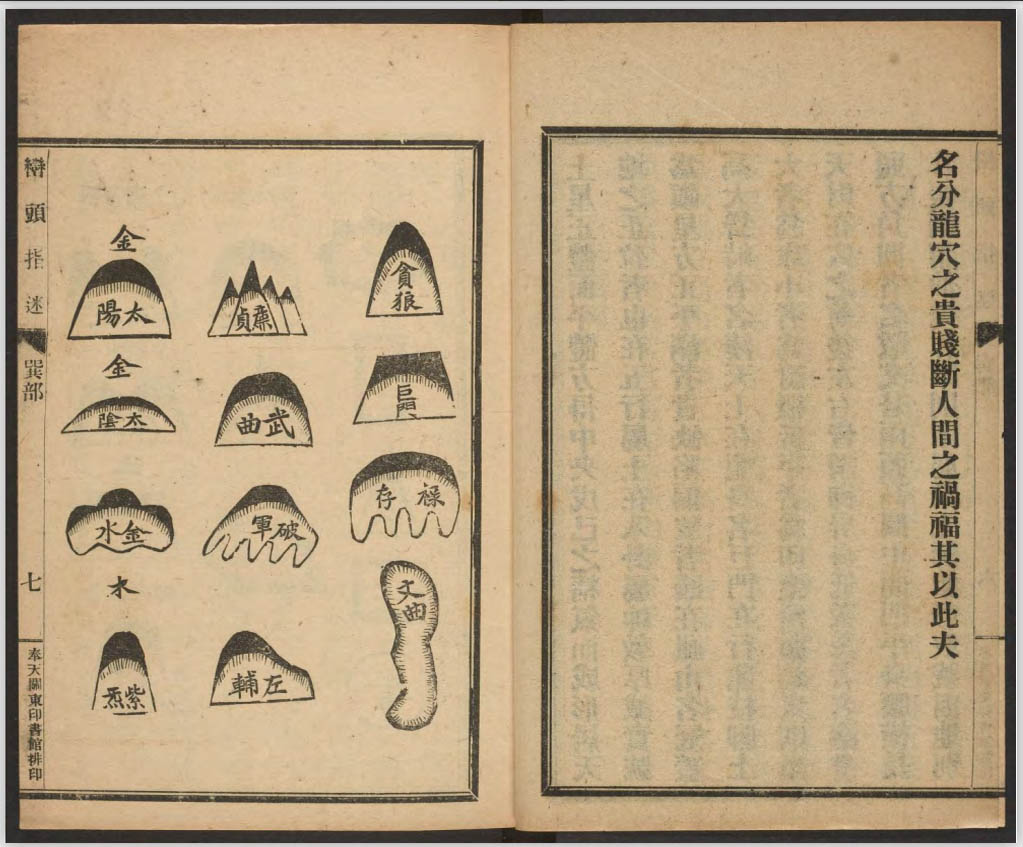 名分龍穴之貴賤斷人間之禍福其以此夫
貪狼
巨門
祿存
文曲
廉貞
武曲
破軍
左輔
金
太陽
金
太陰
金水
木
紫炁
巒頭指迷
巽部
七
奉天關東印書館排印